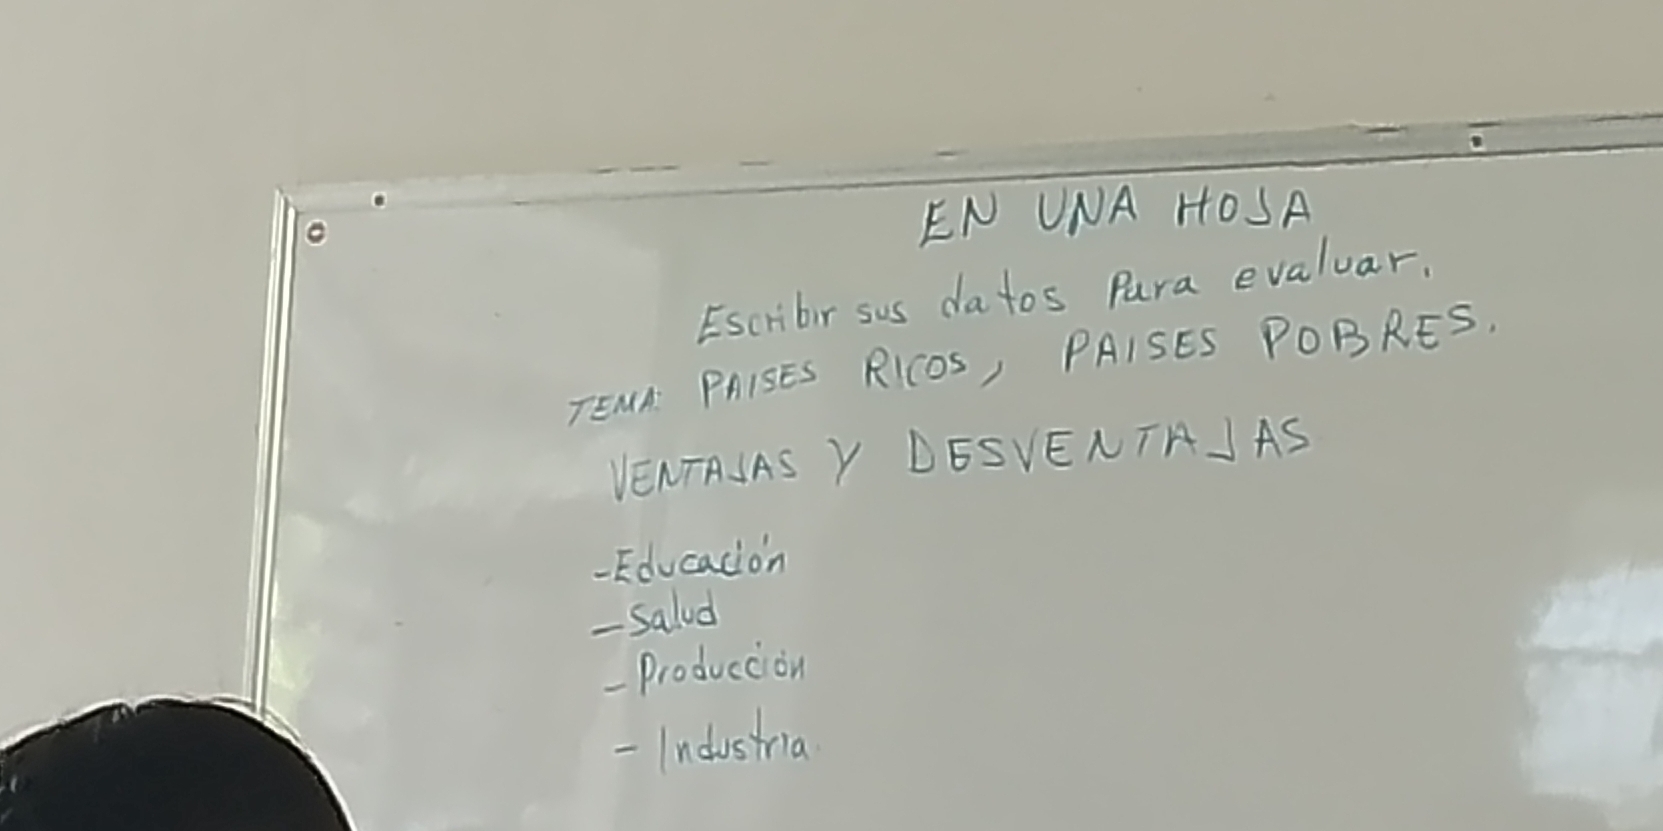 EN UNA HOJA
Escribir sus datos Para evaluar.
TEMA: PAISES RICOS, PAISES POBRES.
VENTAJAS Y DESVENTAJAS
-Educación
-Salud
-Producción
-Industria.